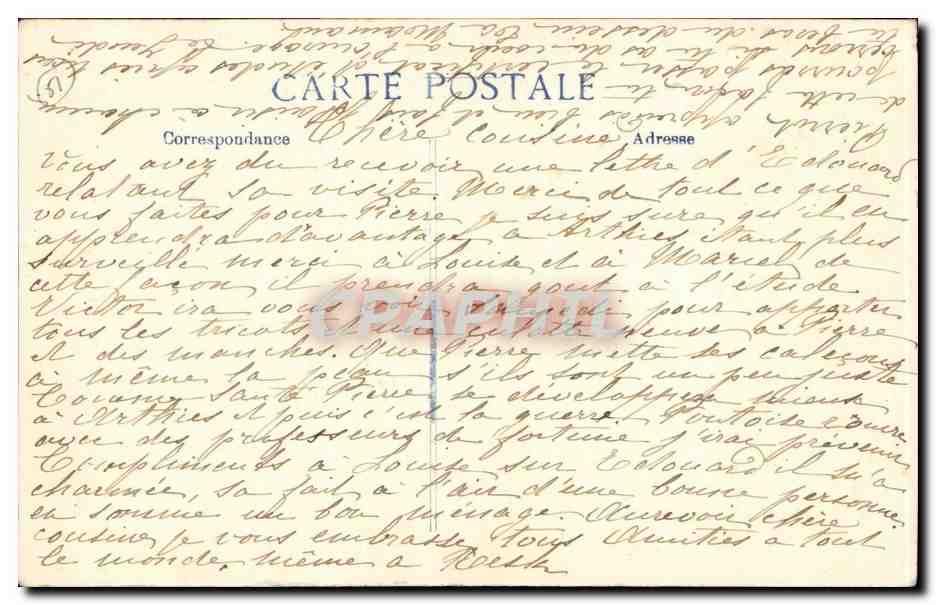 CARTE POSTALE
Correspondance
Adresse
(51)
Chère Cousine,
Vous avez du recevoir une lettre d'Edouard
relatant sa visite. Merci de tout ce que
vous faites pour Pierre je suis sure qu'il en
apprendra d'avantage a Arthies étant plus
surveillé merci à Louise et à Marie de
cette façon il prendra gout à l'étude
Victor ira vous voir pour apporter
tous les tricots neuve a Pierre
et des manches. Que Pierre mette ses caleçons
à même la peau s'ils sont un peu juste
Comme santé Pierre se développera mieux
à Arthies et puis c'est la guerre. Pontoise rouvre
avec des professeurs de fortune j'irai prévenir
Compliments à Louise sur Edouard il m'a
charmée, sa fait à l'air d'une bonne personne
en somme un bon ménage. Aurevoir chère
cousine je vous embrasse tous Amitiés a tout
le monde même a
Pierrot apprends bien et fais plaisir à chacun
de cette façon tu
pourras passer le certificat d'études après nous
verrons si tu as du cœur a l'ouvrage. Le Jeudi
tu feras du dessin
CPAPHIL